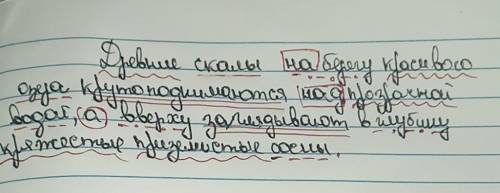 Древние скалы на берегу красивого
озера круто поднимаются над прозрачной
водой, а вверху заглядывают в глубину
кряжестые приземистые сосны.